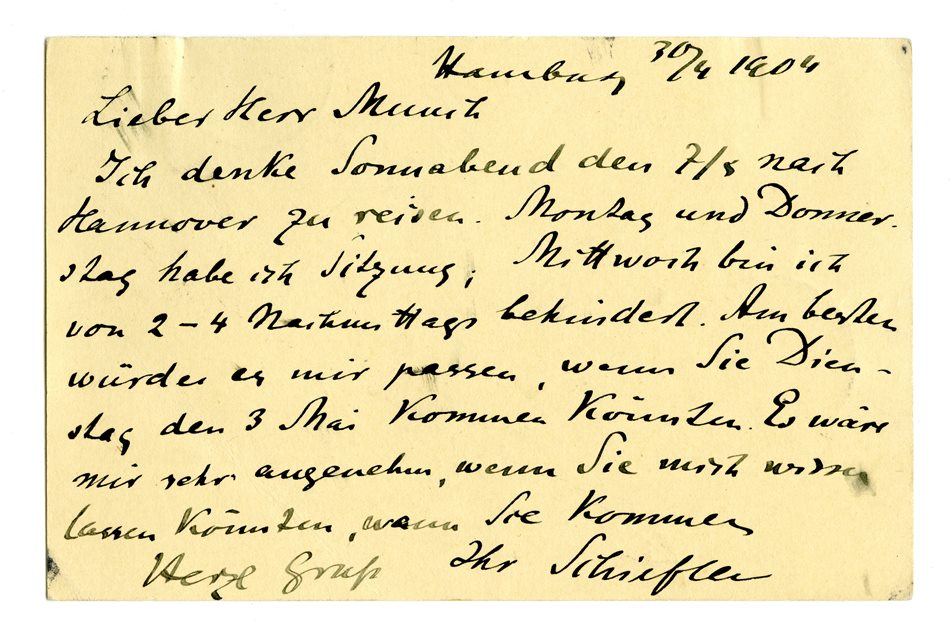 Hamburg 30/4 1904
Lieber Herr Munch
Ich denke Sonnabend den 7/5 nach
Hannover zu reisen. Montag und Donner-
stag habe ich Sitzung; Mittwoch bin ich
von 2-4 Nachmittags behindert. Am besten
würde es mir passen, wenn Sie Dien-
stag den 3 Mai kommen könnten. Es wäre
mir sehr angenehm, wenn Sie mich wissen
lassen könnten, wann Sie kommen
Herzl Gruß Ihr Schiefler